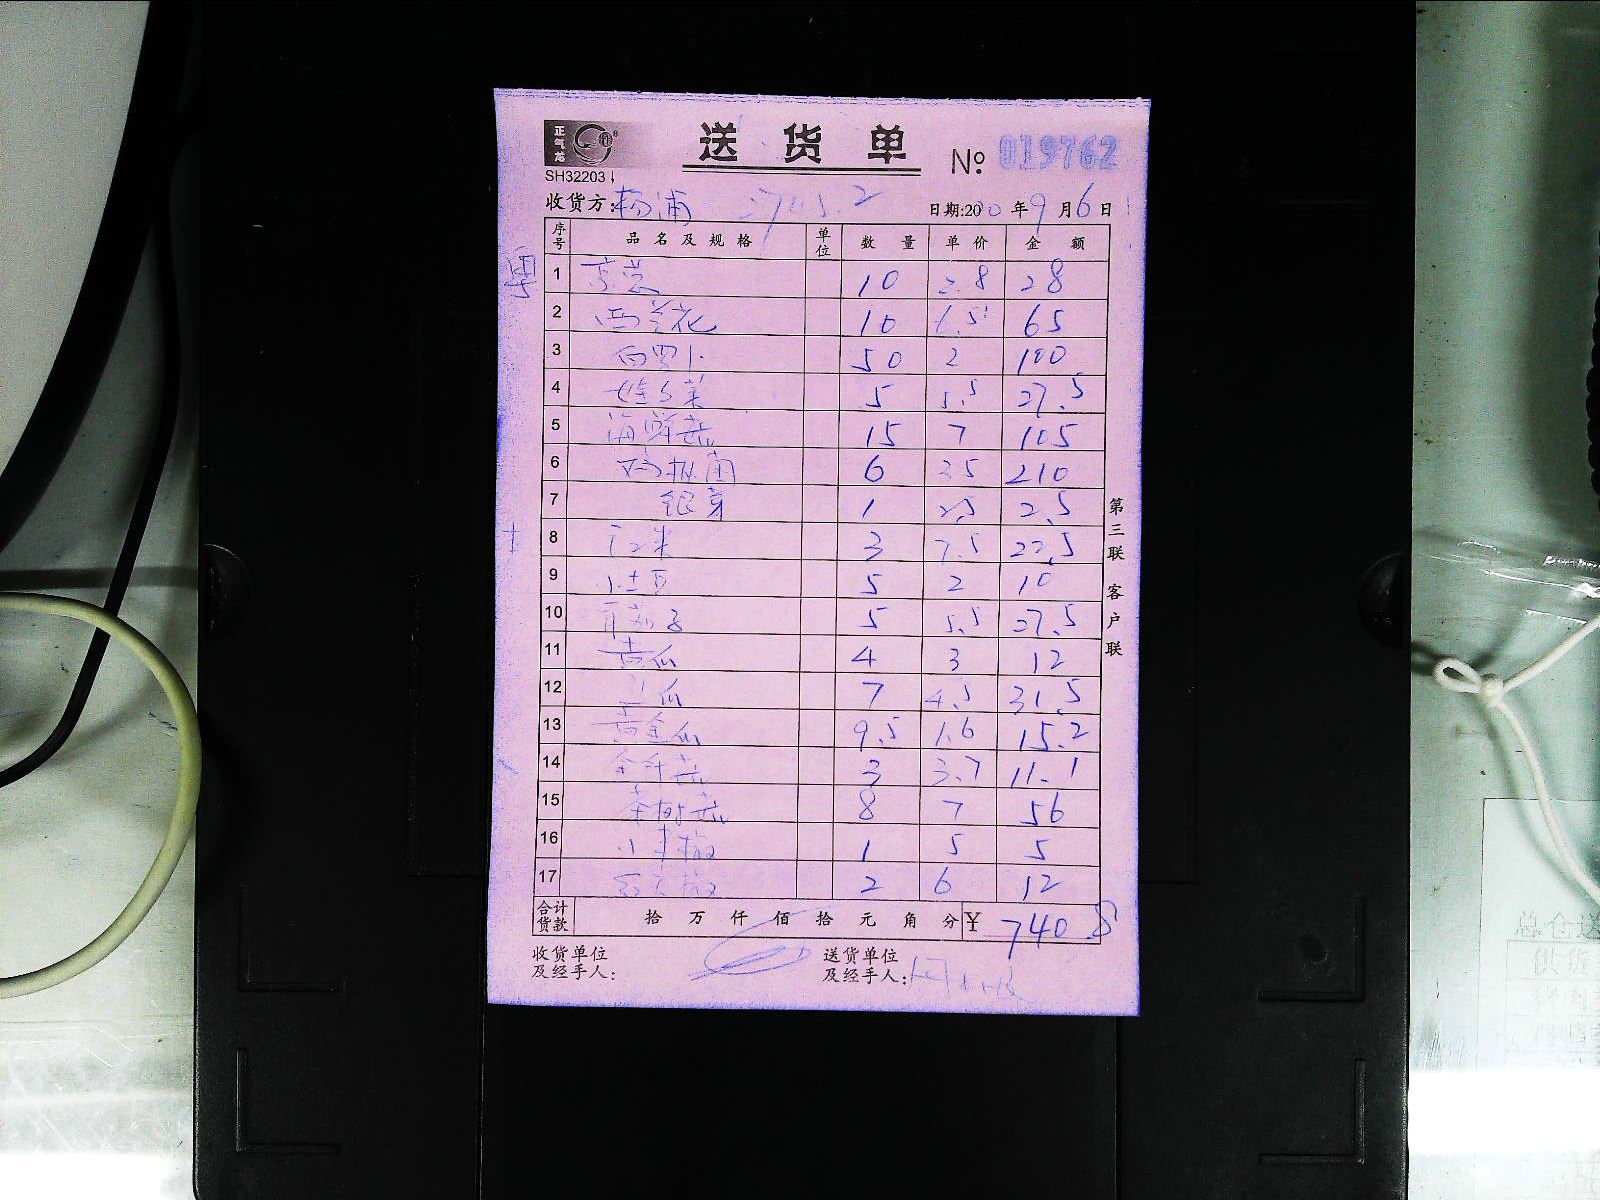 正气龙
送货单
SH32203
№: 019762
收货方: 杨浦
日期:20 年9月6日
序号 品名及规格 单位 数量 单价 金额
1 10 2.8 28
2 西兰花 10 6.5 65
3 白罗卜 50 2 100
4 娃娃菜 5 5.5 27.5
5 海鲜菇 15 7 105
6 6 35 210
7 银芽 1 2.5 2.5
8 3 7.5 22.5
9 小土豆 5 2 10
10 茄子 5 5.5 27.5
11 黄瓜 4 3 12
12 瓜 7 4.5 31.5
13 黄金瓜 9.5 1.6 15.2
14 金针菇 3 3.7 11.1
15 茶树菇 8 7 56
16 小米椒 1 5 5
17 2 6 12
合计货款 拾 万 仟 佰 拾 元 角 分 ¥ 740.8
收货单位及经手人:
送货单位及经手人:
第三联 客户联